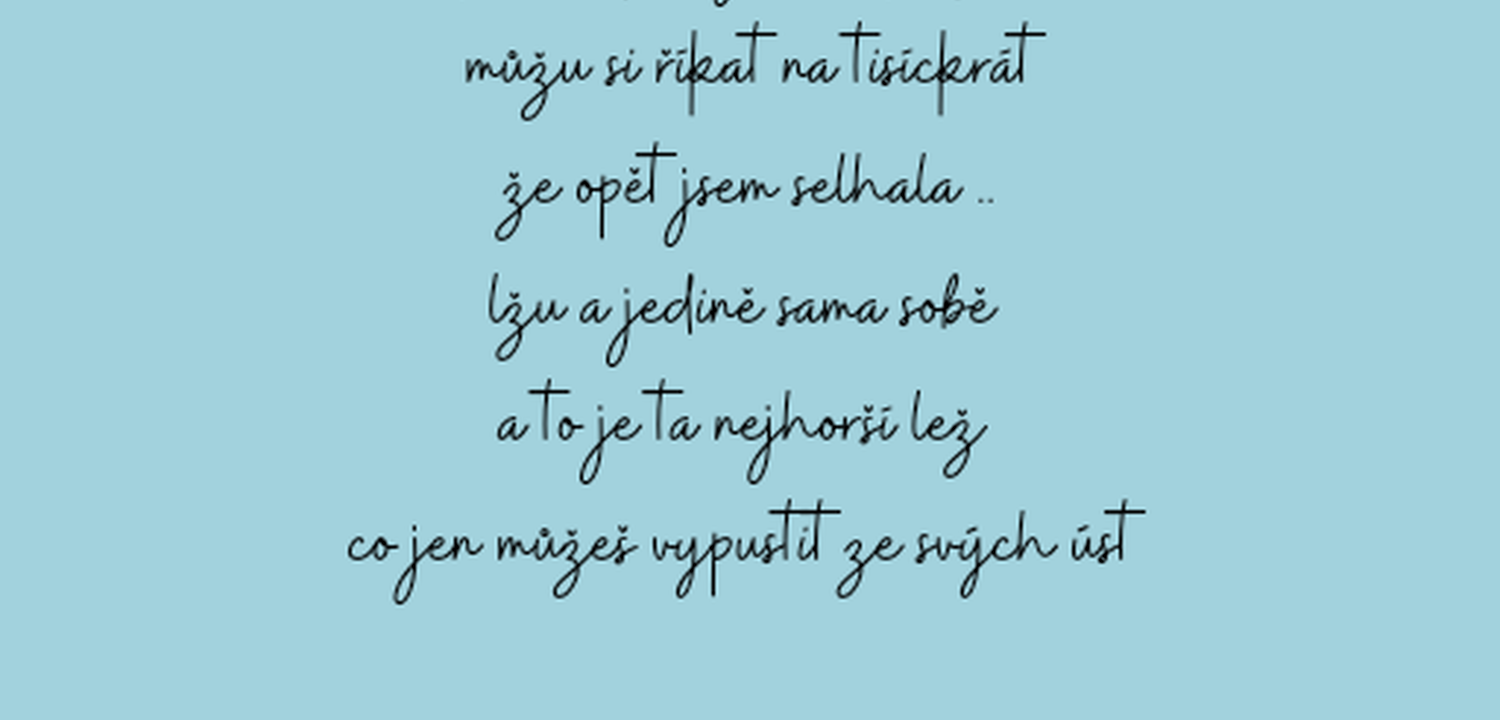 můžu si říkat na tisíckrát
že opět jsem selhala ..
lžu a jedině sama sobě
a to je ta nejhorší lež
co jen můžeš vypustit ze svých úst